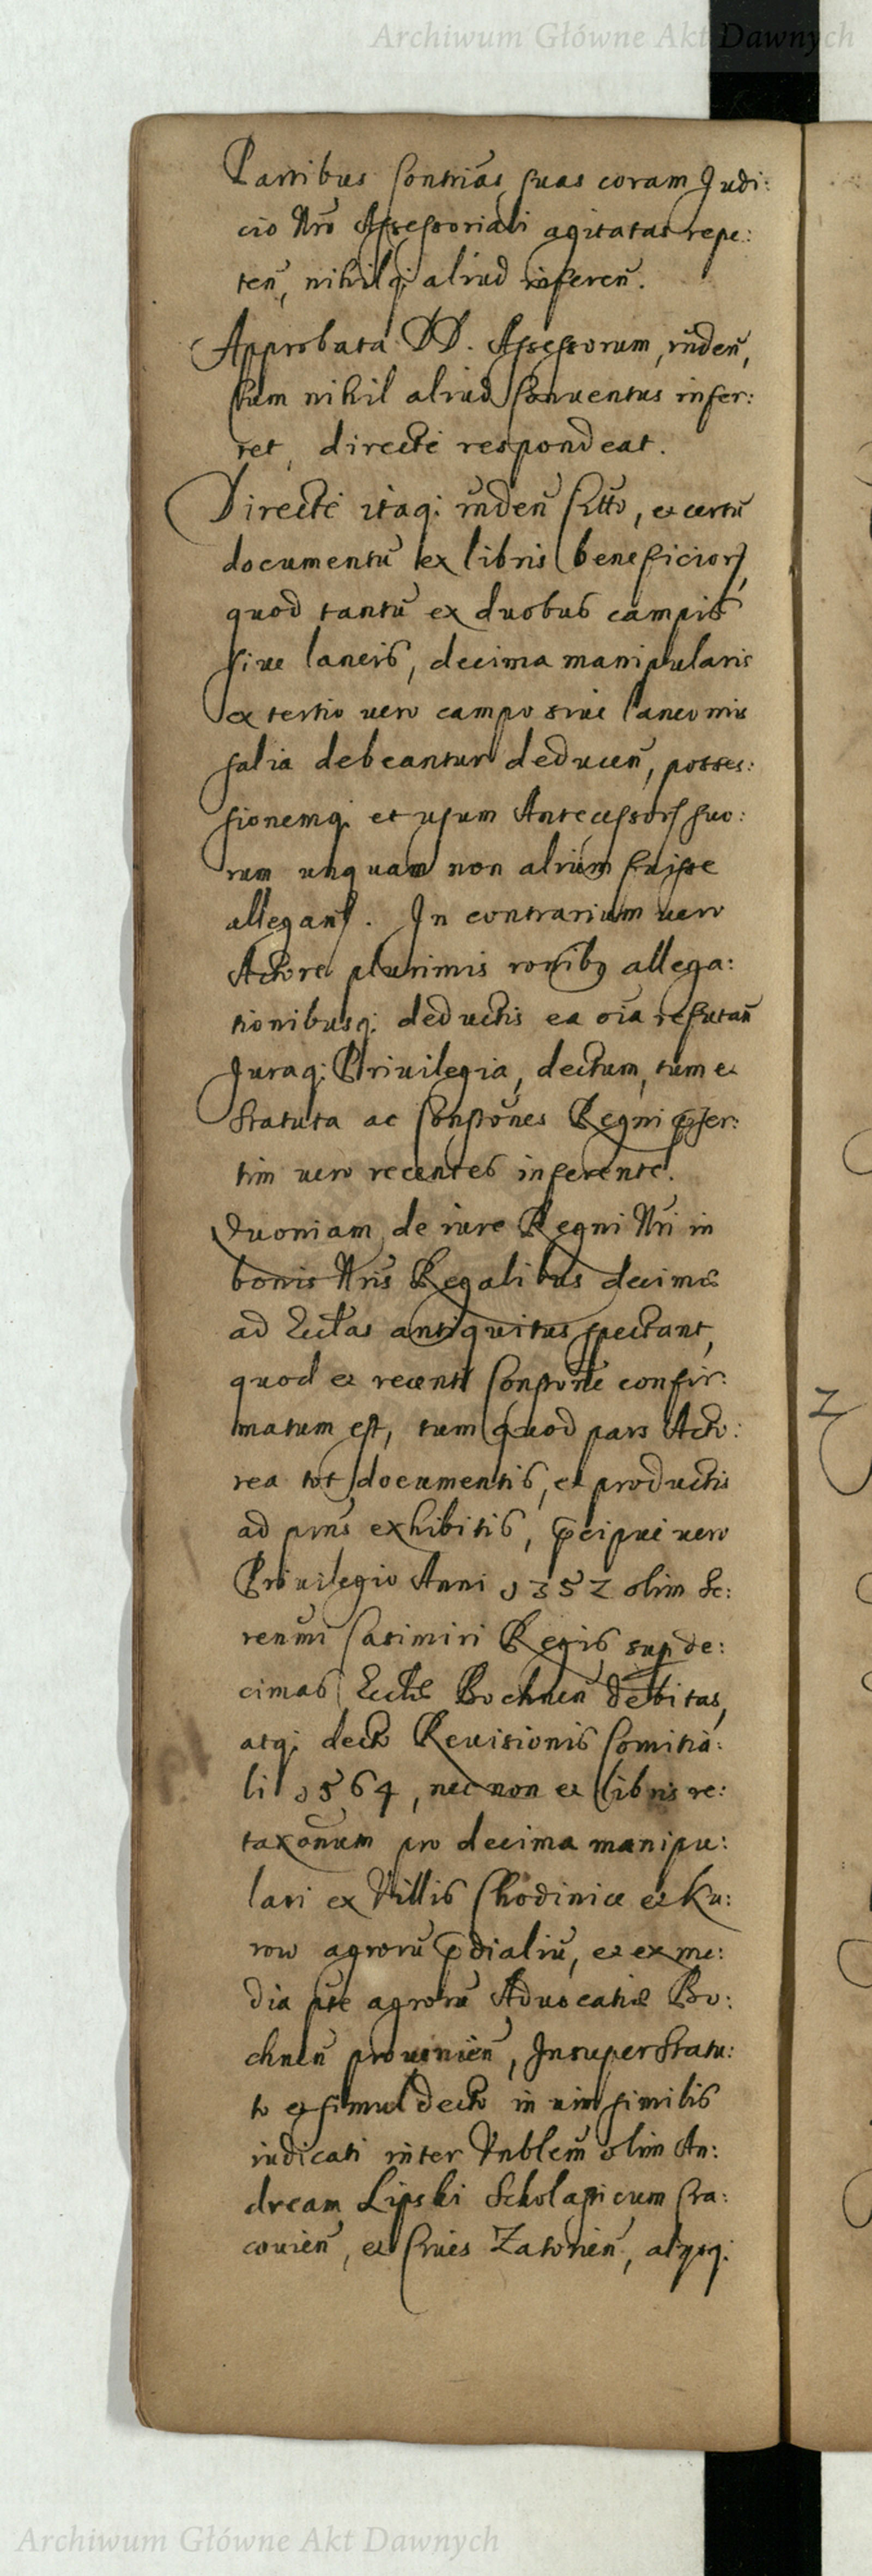 Archiwum Główne Akt Dawnych
Partibus Contrias suas coram Judi:
cio Nro Assessoriali agitatas repe:
ten, nihilq; aliud inferen.
Approbata DD. Assessorum, rnden,
Cum nihil aliud Conventus infer:
ret, directe respondeat.
Directe itaq; rnden Citto, et certu
documentu ex libris beneficior,
quod tantu ex duobus campis
sive laneis, decima manipularis
ex tertio uero campo sive laneo mis
salia debeantur deducen, posses:
sionemq; et usum Antecessor suo:
rum unquam non alium fuisse
allegan. In contrarium uero
Actorea plurimis ronibq allega:
tionibusq; deductis ea oia refutan
Juraq; Privilegia, dectum, tum et
Statuta ac Constones Regni pser:
tim uero recentes inferente.
Quoniam de iure Regni Nri in
bonis Nris Regalibus decimae
ad Ecclas antiquitus spectant,
quod et recenti Constone confir:
matum est, tum quod pars Acto:
rea tot documentis, et productis
ad pns exhibitis, pcipue uero
Privilegio Anni 1352 olim Se:
renmi Casimiri Regis sup de:
cimas Ecclae Bochnen debitas,
atq; decto Revisionis Comitia:
li 1564, nec non et libris re:
taxonum pro decima manipu:
lari ex Villis Chodinice et Ku:
row agroru pdialiu, et ex me:
dia pte agroru Aduocatiae Bo:
chnen prouenien, Insuper Statu:
to et simul decto in uim similis
iudicati inter Vnblem olim An:
dream Lipski Scholasticum Cra:
couien, et Cives Zatorien, alysq;
Archiwum Główne Akt Dawnych